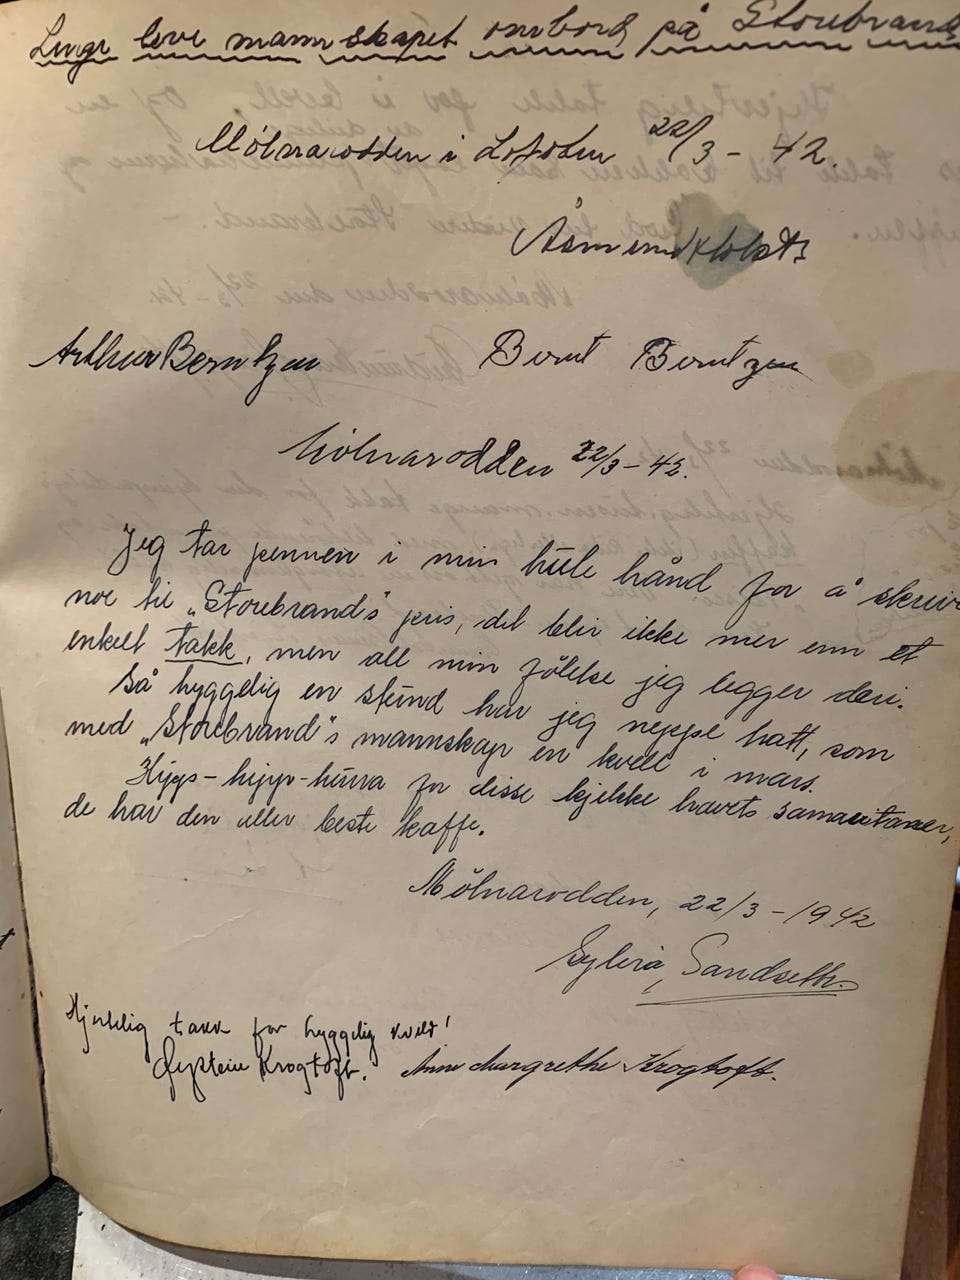 Lenge leve mannskapet ombord på Storebrand
Mólnarodden i Lofoten 22/3 - 42.
Åsmund
Arthur Berntzen Bernt Berntzen
Mólnarodden 22/3 - 42.
Jeg tar pennen i min hule hånd for å skrive
noe til „Storebrand's" pris, det blir ikke mer enn et
enkelt takk, men all min følelse jeg legger deri.
Så hyggelig en stund har jeg neppe hatt, som
med „Storebrand"s mannskap en kveld i mars.
Hipp - hipp - hurra for disse kjekke havets samaritaner,
de har den aller beste kaffe.
Mólnarodden, 22/3 - 1942
Sylvia Sandseth.
Hjertelig takk for hyggelig kveld!
Øystein Krogtoft. Ann Margrethe Krogtoft.